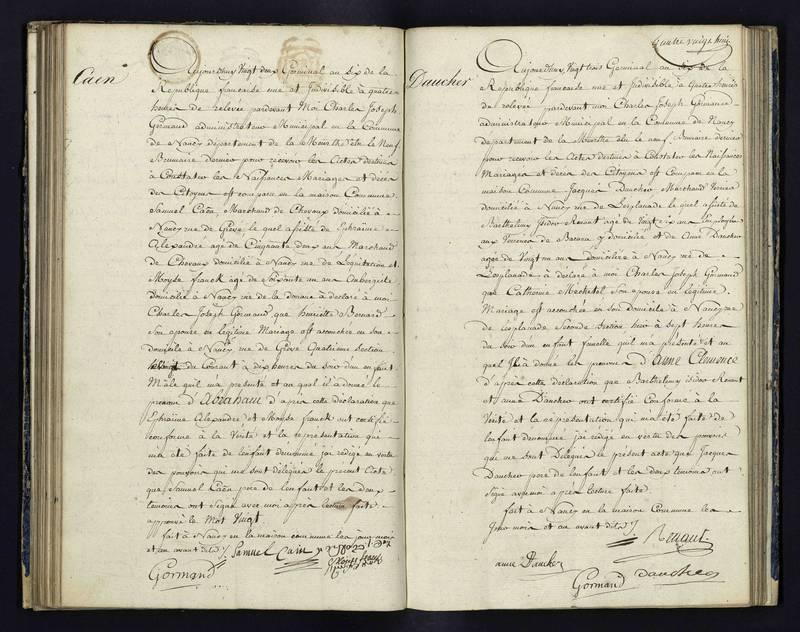 Caën
Aujourdhuy Vingt deux Germinal an six de la
Republique francaise une et Indivisible à quatre
heures de relevée pardevant Moi Charles Joseph
Germand administrateur Municipal en la Commune
de Nancy département de la Meurthe Elu le Neuf
Brumaire dernier pour recevoir les Actes destinés
à Constater les Naissances Mariages et décès
des Citoyens est comparu en la maison Commune
Samuel Caën, Marchand de Chevaux domicilié à
Nancy rue de Grève, lequel assisté de Ephraime
Alexandre agé de Cinquante deux ans Marchand
de Chevaux domicilié à Nancy rue de Lequitation et
Moyse franck agé de Soixante un ans Aubergiste
domicilié à Nancy rue de la douane a déclaré a moi
Charles Joseph Germand, que henriette Bernard
Son epouse en légitime Mariage est accouchée en son
domicile à Nancy rue de Grève Quatrieme section
le Vingt du Courant à dix heures du Soir dun enfant
Mâle quil ma presenté et au quel il a donné le
prenom d'Abraham d'après cette déclaration que
Ephraïme Alexandre et Moyse franck ont certifié
conforme à la Vérité et la représentation qui
ma été faite de lenfant denommé jai redigé en vertu
des pouvoirs qui me sont délégués le présent Acte
que Samuel Caën père de lenfant et les deux
temoins ont Signé avec moi après lecture faite
approuvé le Mot Vingt
fait à Nancy en la maison commune les jour mois
et an avant dits
Samuel Cain
Gormand
quatre vingt huit
Daucher
Aujourdhuy Vingt trois Germinal an six de la
République francaise une et Indivisible à Quatre heures
de relevée pardevant moi Charles Joseph Germand
administrateur Municipal en la Commune de Nancy
département de la Meurthe élu le neuf Brumaire dernier
pour recevoir les Actes destinés à Constater les Naissances
Mariages et décès des Citoyens est Comparu en la
maison Commune Jacques Daucher Marchand Verrier
domicilié à Nancy rue de Lesplanade le quel assisté de
Barthelemy Isidor Renaut agé de Vingt six ans Employé
aux de y domicilié et de Anne Daucher
agée de Vingt un ans domiciliée à Nancy rue de
Lesplanade à déclaré à moi Charles Joseph Germand
que Catherine Mechetel Son épouse en légitime
Mariage est accouchée en son domicile à Nancy rue
de lesplanade Seconde Section hier à sept heures
du soir dun enfant femelle quil ma présenté et au
quel Il a donné les prenoms d'Anne Clemence
d'après cette déclaration que Barthelemy isidor Renaut
et anne Daucher ont certifié Conforme à la
Vérité et la représentation qui ma été faite de
lenfant denommé jai rédigé en vertu des pouvoirs
qui me sont Délégués le présent acte que Jacques
Daucher père de lenfant et les deux temoins ont
Signé avec moi après lecture faite
fait à Nancy en la maison Commune les
jour mois et an avant dits
Renaut
anne Daucher
Gormand daucher